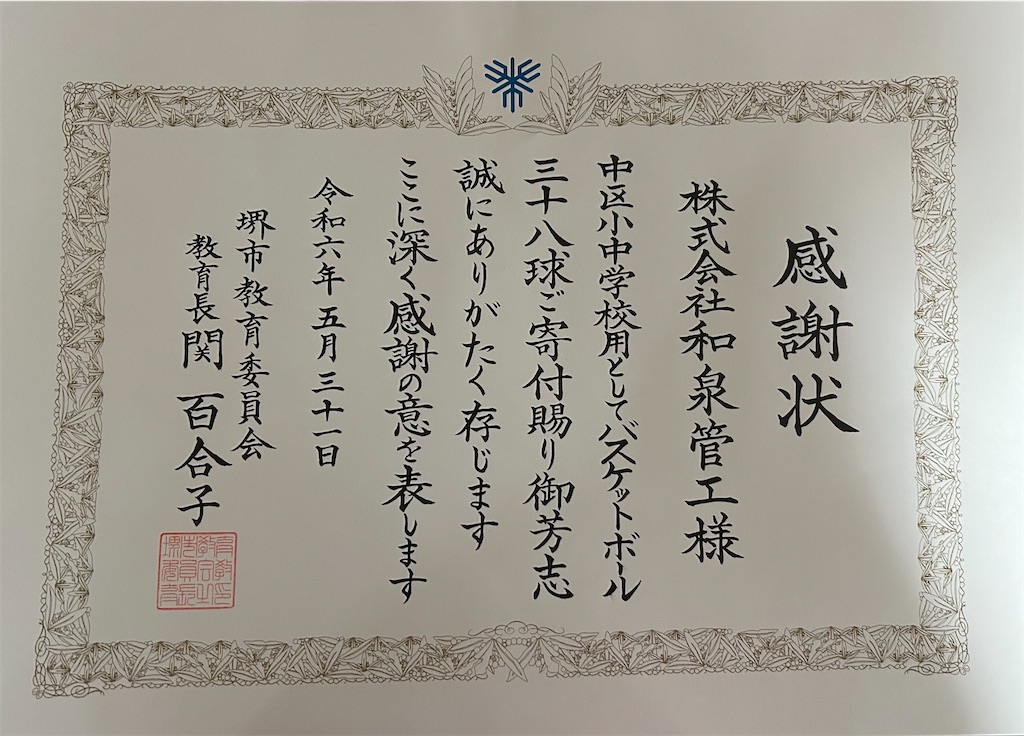 感謝状
株式会社和泉管工様
中区小中学校用としてバスケットボール
三十八球ご寄付賜り御芳志
誠にありがたく存じます
ここに深く感謝の意を表します
令和六年五月三十一日
堺市教育委員会
教育長 関 百合子